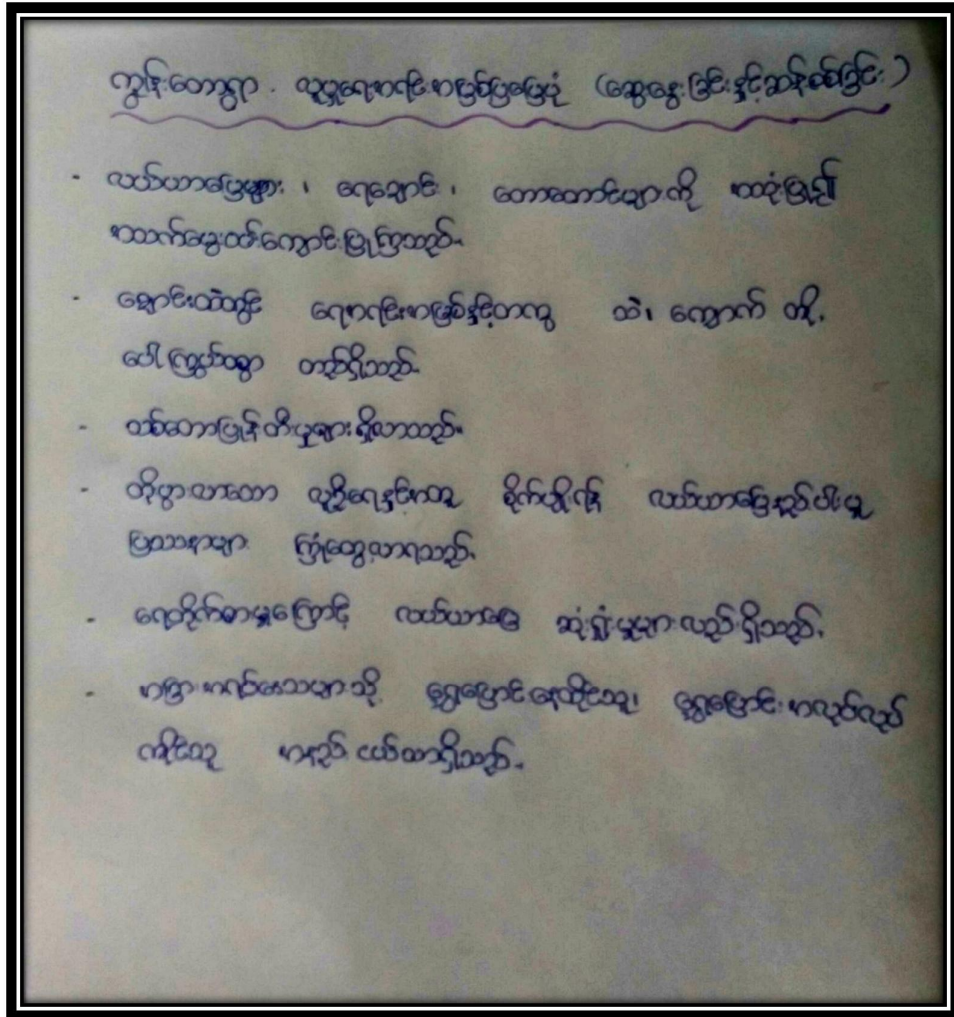 ကျွန်းတောရွာ . လူမှုရေးအရင်းအမြစ်ပြမြေပုံ (ဆွေးနွေးခြင်းနှင့်ဆန်းစစ်ခြင်း)
- လယ်ယာမြေများ ၊ ရေချောင်း ၊ တောတောင်များကို အသုံးပြု၍
အသက်မွေးဝမ်းကျောင်းပြုကြသည်။
- ချောင်းထဲတွင် ရေအရင်းအမြစ်နှင့်တကွ သဲ၊ ကျောက် တို့
ပေါကြွယ်ဝစွာ တည်ရှိသည်။
- သစ်တောပြုန်းတီးမှုများရှိလာသည်။
- တိုးပွားလာသော လူဦးရေနှင့်အတူ စိုက်ပျိုးရန် လယ်ယာမြေနည်းပါးမှု
ပြဿနာများ ကြုံတွေ့လာရသည်။
- ရေတိုက်စားမှုကြောင့် လယ်ယာမြေ ဆုံးရှုံးမှုများလည်းရှိသည်။
- အခြားအရပ်ဒေသများသို့ ရွှေ့ပြောင်းနေထိုင်သူ၊ ရွှေ့ပြောင်းအလုပ်လုပ်
ကိုင်သူ အနည်းငယ်သာရှိသည်။